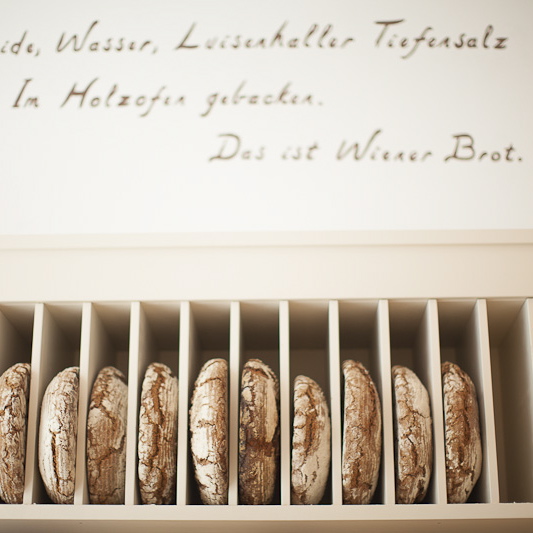 ide, Wasser, Luisenhaller Tiefensalz
Im Holzofen gebacken.
Das ist Wiener Brot.